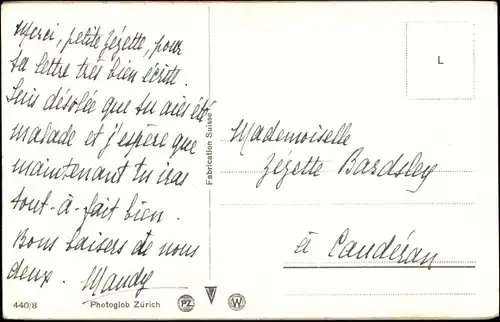 Merci, petite Zézette, pour
ta lettre très bien écrite.
Suis désolée que tu aies été
malade et j'espère que
maintenant tu iras
tout-à-fait bien.
Bons baisers de nous
deux. Mandy
440/8
Photoglob Zürich
PZ
W
Fabrication Suisse
L
Mademoiselle
Zézette Bardsley
à Caudéran